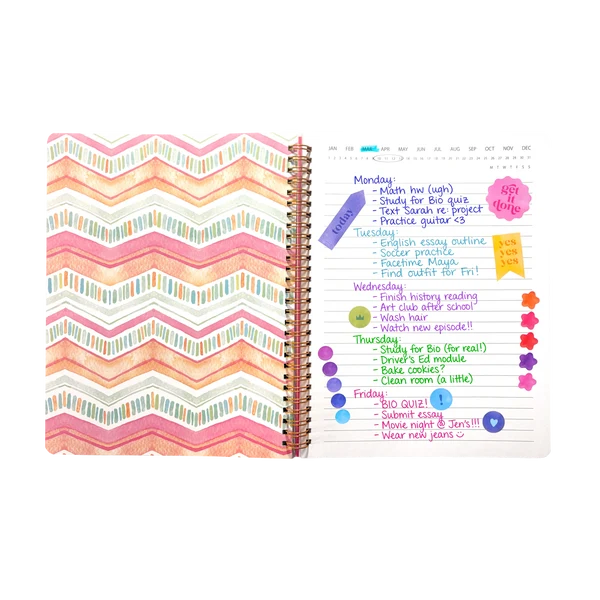 JAN FEB MAR APR MAY JUN JUL AUG SEP OCT NOV DEC
1 2 3 4 5 6 7 8 9 10 11 12 13 14 15 16 17 18 19 20 21 22 23 24 25 26 27 28 29 30 31
M T W T F S S
Monday:
- Math hw (ugh)
- Study for Bio quiz
- Text Sarah re: project
- Practice guitar <3
get it done
today
Tuesday:
- English essay outline
- Soccer practice
- Facetime Maya
- Find outfit for Fri!
yes
yes
yes
Wednesday:
- Finish history reading
- Art club after school
- Wash hair
- Watch new episode!!
Thursday:
- Study for Bio (for real!)
- Driver's Ed module
- Bake cookies?
- Clean room (a little)
Friday:
- BIO QUIZ!
!
- Submit essay
- Movie night @ Jen's!!!
- Wear new jeans ☺